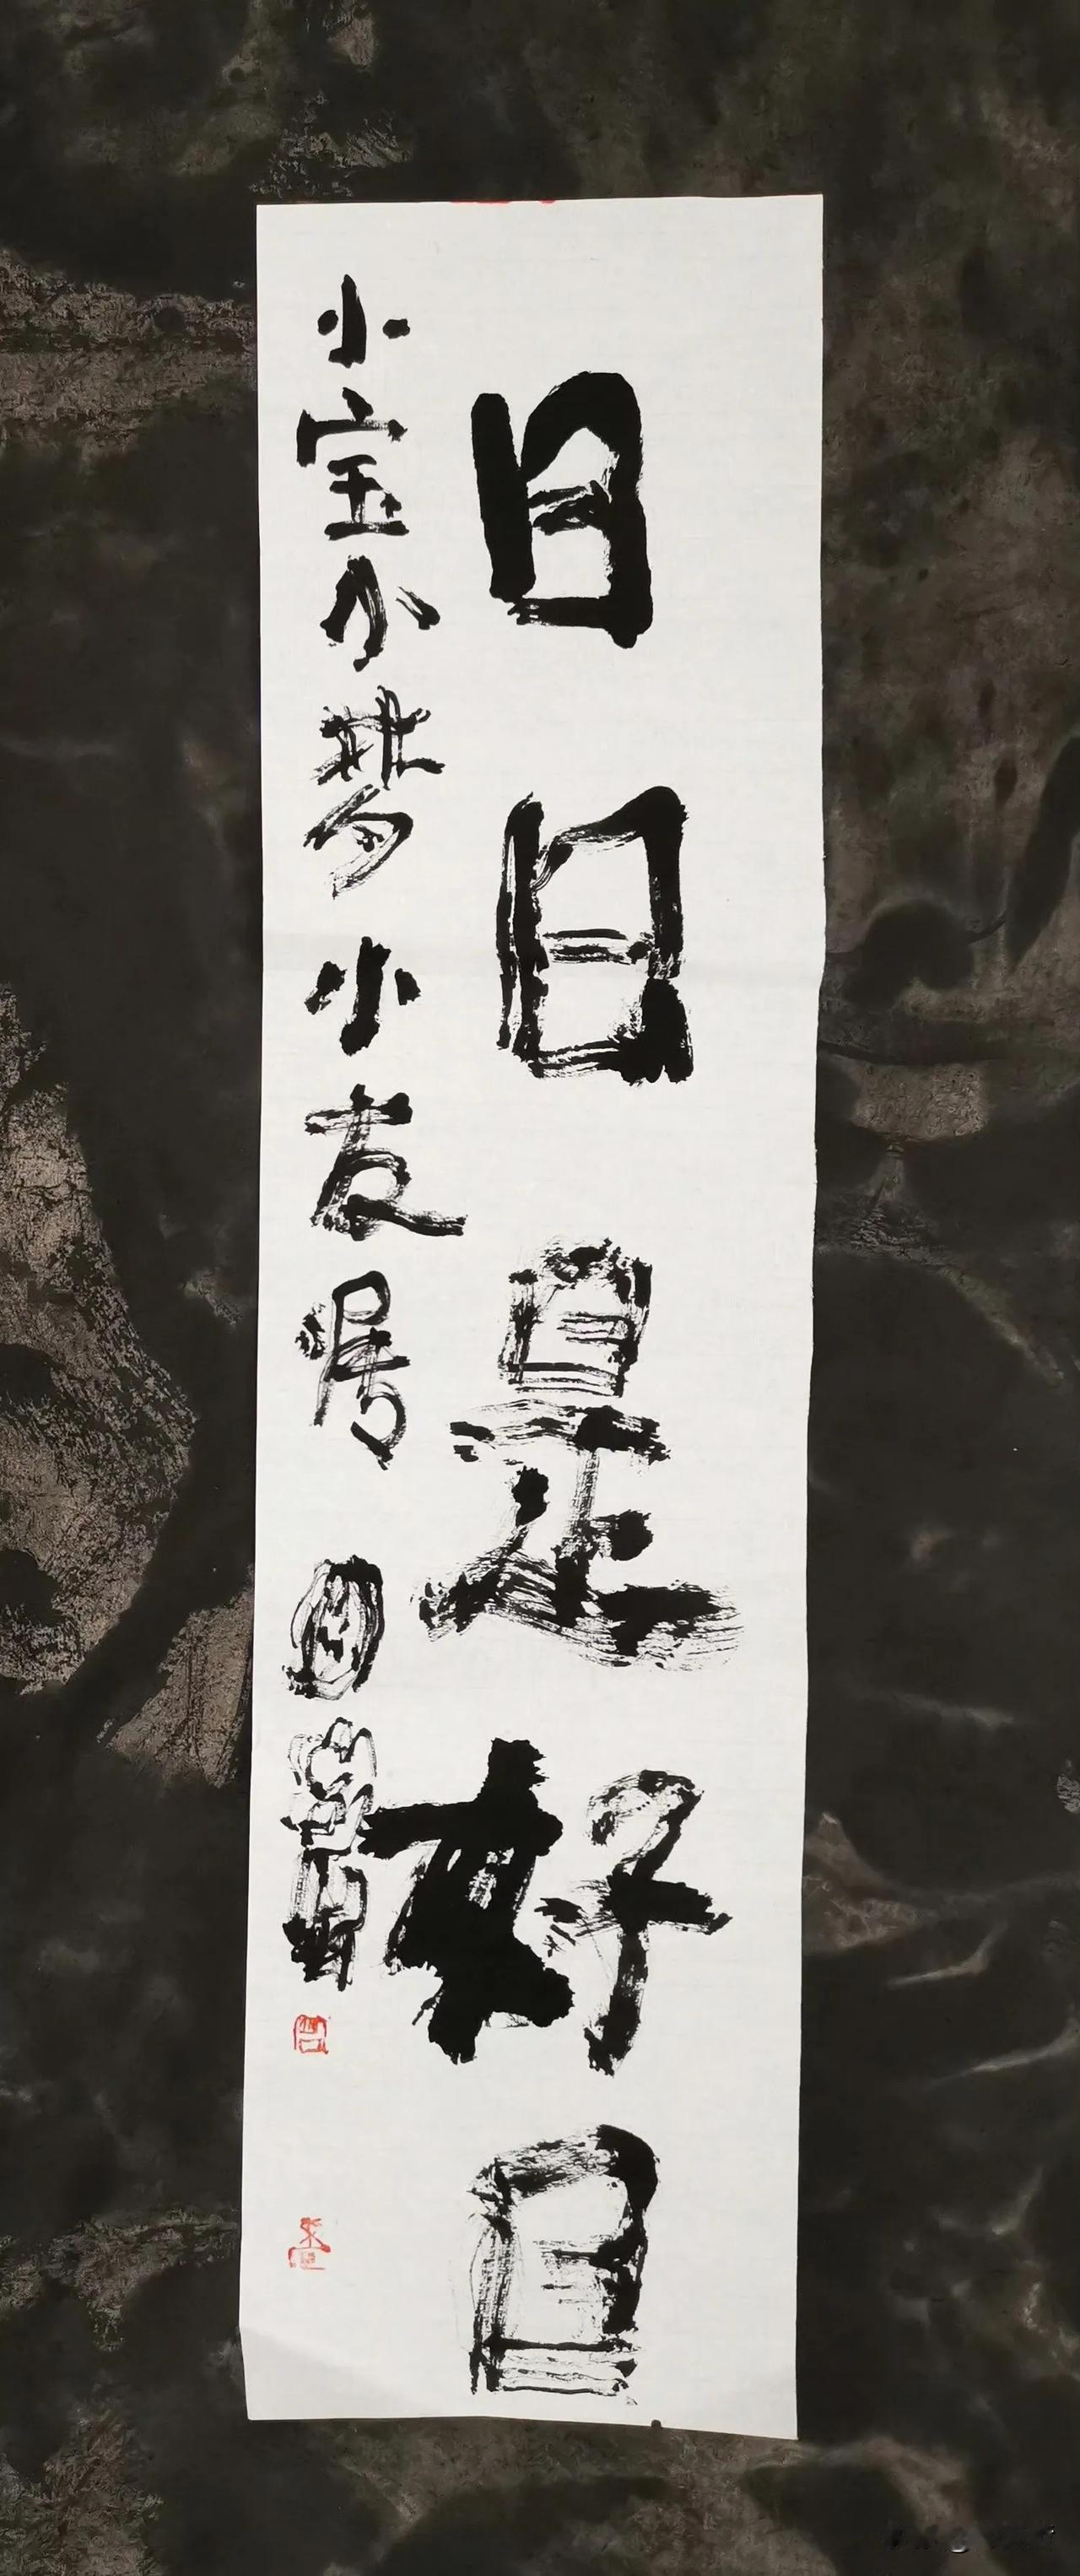 日日是好日
小宝小梦小友属